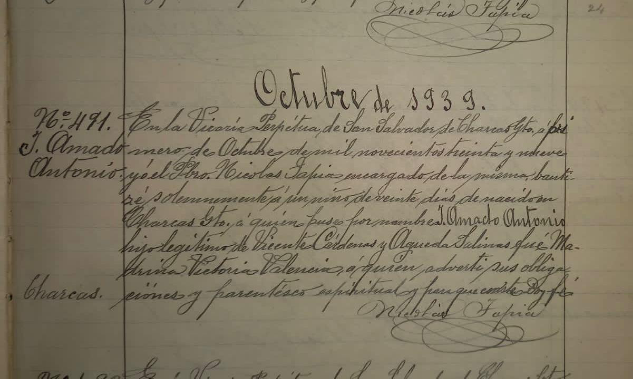 Nicolás Tapia
24
Octubre de 1939.
No. 491.
J. Amado
Antonio.
Charcas.
En la Vicaría Perpétua, de San Salvador, de Charcas Gto, á pri
mero, de Octubre, de mil, novecientos treinta y nueve
yó el Pbro. Nicolas Tapia encargado de la misma, bauti-
zé solemnemente á un niño de veinte, dias de nacido en
Charcas Gto, á quien puse por nombre J. Amado Antonio
hijo legitimo de Vicente Cárdenas y Agueda Salinas, fué Ma-
drina Victoria Valencia, á quien, adverti, sus obliga-
ciónes y parentesco espiritual y para que conste Doy fé
Nicolás Tapia